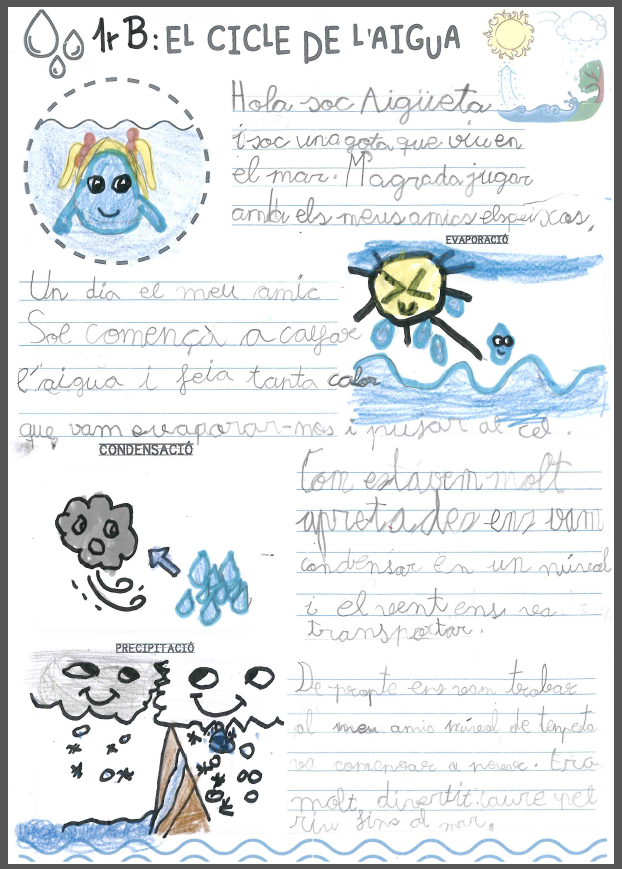 1r B: EL CICLE DE L'AIGUA
Hola soc Aigüeta
i soc una gota que viu en
el mar. M'agrada jugar
amb els meus amics els peixos.
EVAPORACIÓ
Un dia el meu amic
Sol començà a calfar
l'aigua i feia tanta calor
que vam evaporar-nos i pujar al cel.
CONDENSACIÓ
Com estàvem molt
apretades ens vam
condensar en un núvol
i el vent ens va
transportar.
PRECIPITACIÓ
De propte ens vam trobar
al meu amic núvol de tempesta
va començar a nevar. Era
molt divertit caure pel
riu fins al mar.